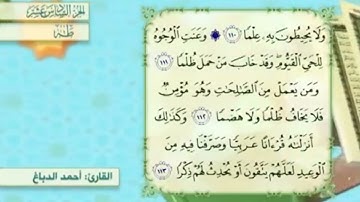 الجزء السادس عشر
طه
وَلَا يُحِيطُونَ بِهِۦ عِلْمًا ﴿١١٠﴾ ۞ وَعَنَتِ الْوُجُوهُ
لِلْحَيِّ الْقَيُّومِ ۖ وَقَدْ خَابَ مَنْ حَمَلَ ظُلْمًا ﴿١١١﴾
وَمَن يَعْمَلْ مِنَ الصَّٰلِحَٰتِ وَهُوَ مُؤْمِنٌ
فَلَا يَخَافُ ظُلْمًا وَلَا هَضْمًا ﴿١١٢﴾ وَكَذَٰلِكَ
أَنزَلْنَٰهُ قُرْءَانًا عَرَبِيًّا وَصَرَّفْنَا فِيهِ مِنَ
الْوَعِيدِ لَعَلَّهُمْ يَتَّقُونَ أَوْ يُحْدِثُ لَهُمْ ذِكْرًا ﴿١١٣﴾
القارئ: أحمد الدباغ